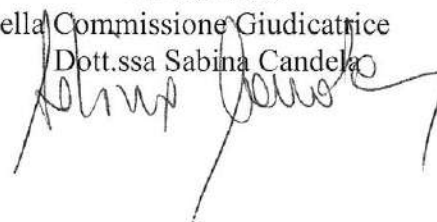 ella Commissione Giudicatrice
Dott.ssa Sabina Candela